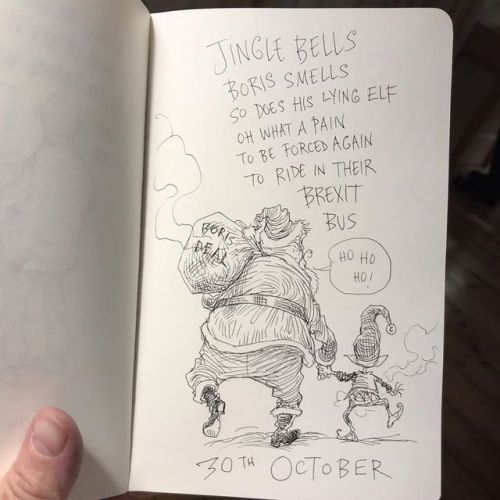 JINGLE BELLS
BORIS SMELLS
SO DOES HIS LYING ELF
OH WHAT A PAIN
TO BE FORCED AGAIN
TO RIDE IN THEIR
BREXIT
BUS
BORIS
DEAL
HO HO
HO!
30TH OCTOBER